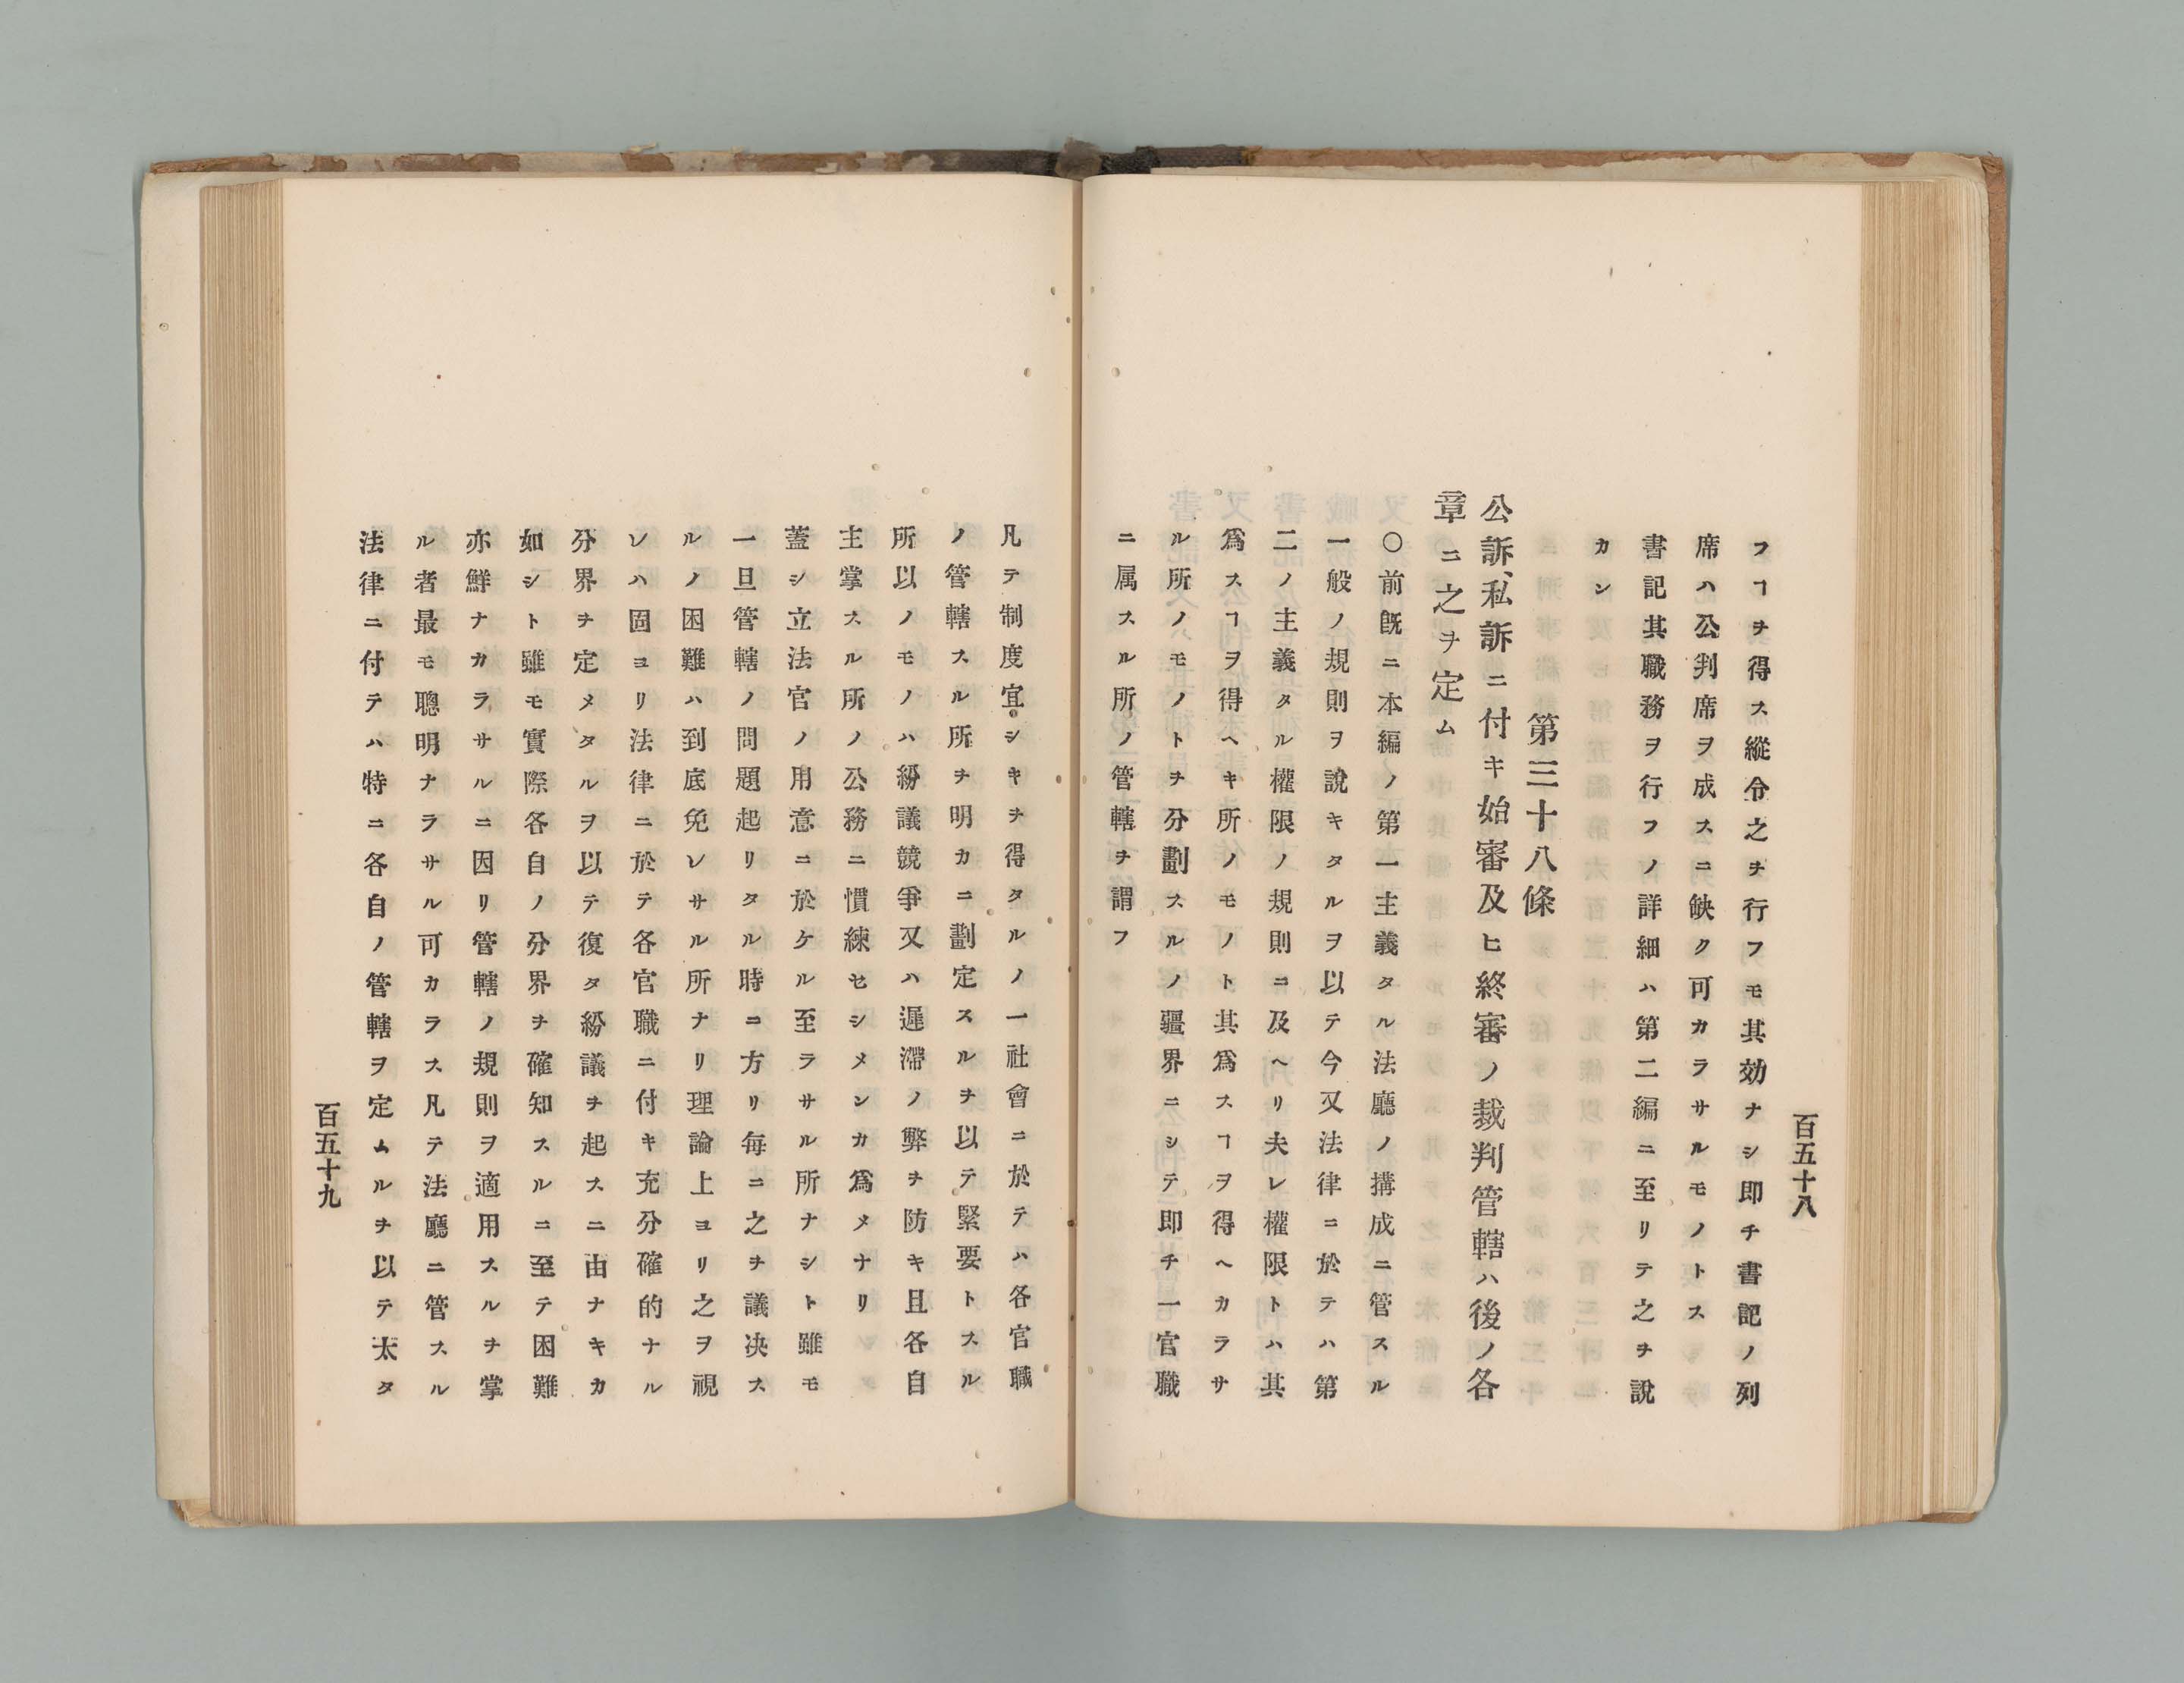 百五十八
フヿヲ得ス縱令之ヲ行フモ其効ナシ即チ書記ノ列
席ハ公判席ヲ成スニ缺ク可カラサルモノトス
書記其職務ヲ行フノ詳細ハ第二編ニ至リテ之ヲ說
カン
第三十八條
公訴、私訴ニ付キ始審及ヒ終審ノ裁判管轄ハ後ノ各
章ニ之ヲ定ム
〇前既ニ本編ノ第一主義タル法廳ノ搆成ニ管スル
一般ノ規則ヲ說キタルヲ以テ今又法律ニ於テハ第
二ノ主義タル權限ノ規則ニ及ヘリ夫レ權限トハ其
爲スヿヲ得ヘキ所ノモノト其爲スヿヲ得ヘカラサ
ル所ノモノトヲ分劃スルノ疆界ニシテ即チ一官職
ニ属スル所ノ管轄ヲ謂フ
凡テ制度宜シキヲ得タルノ一社會ニ於テハ各官職
ノ管轄スル所ヲ明カニ劃定スルヲ以テ緊要トスル
所以ノモノハ紛議競爭又ハ遲滯ノ弊ヲ防キ且各自
主掌スル所ノ公務ニ慣練セシメンカ爲メナリ
蓋シ立法官ノ用意ニ於ケル至ラサル所ナシト雖モ
一旦管轄ノ問題起リタル時ニ方リ毎ニ之ヲ議决ス
ルノ困難ハ到底免レサル所ナリ理論上ヨリ之ヲ視
レハ固ヨリ法律ニ於テ各官職ニ付キ充分確的ナル
分界ヲ定メタルヲ以テ復タ紛議ヲ起スニ由ナキカ
如シト雖モ實際各自ノ分界ヲ確知スルニ至テ困難
亦鮮ナカラサルニ因リ管轄ノ規則ヲ適用スルヲ掌
ル者最モ聰明ナラサル可カラス凡テ法廳ニ管スル
法律ニ付テハ特ニ各自ノ管轄ヲ定ムルヲ以テ太タ
百五十九